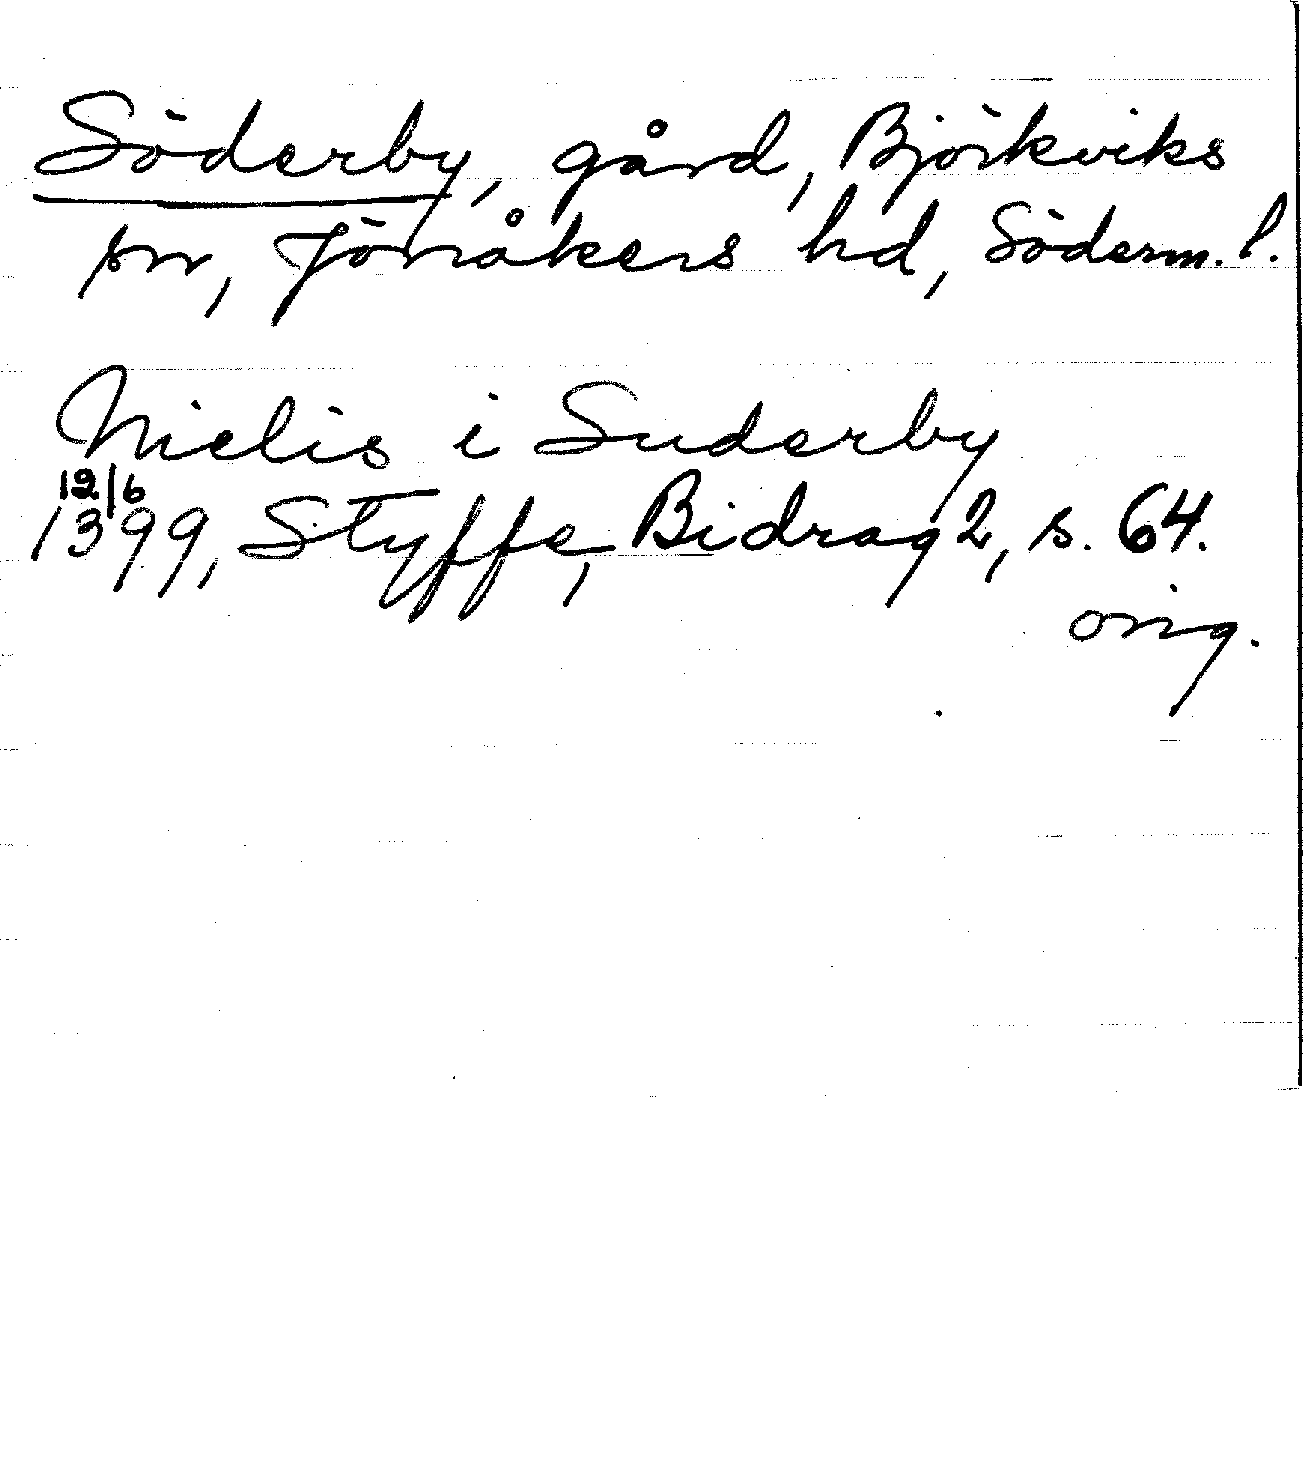 Söderby, gård, Björkviks
sn, Jönåkers hd, Söderm. l.
Nielis i Suderby
12/6
1399, Styffe, Bidrag 2, s. 64.
orig.